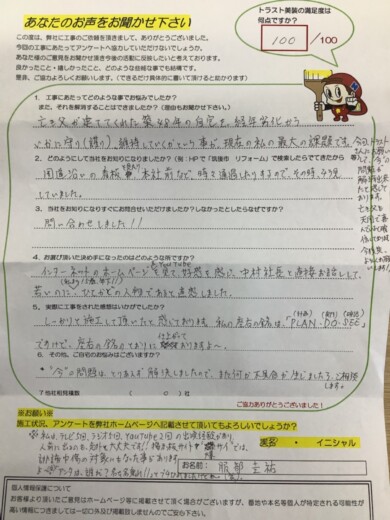 あなたのお声をお聞かせ下さい
トラスト美装の満足度は
何点ですか?
100 /100
この度は、弊社に工事のご依頼を頂きまして、ありがとうございました。
今回の工事にあたってアンケートへ協力していただけないでしょうか。
あなた様のご意見をお聞かせ頂き今後の活動に反映したいと考えております。
良かったこと・嬉しかったこと、どのような些細な事でも結構です。
是非、ご協力よろしくお願いします。(できるだけ具体的に書いて頂けると助かります)
1. 工事にあたってどのような事でお悩みでしたか?
また、それを解決することはできましたか?(理由もお聞かせ下さい。)
亡き父が建ててくれた築48年の自宅を経年劣化から
いかに守り(護り)維持していくかという事が、現在の私の最大の課題です。
2. どのようにして当社をお知りになりましたか?(例:HPで「筑後市 リフォーム」で検索したらでてきたから 等)
国道沿いの看板や本社前など、時々通過したりするので、その時、よく見
していました。
3. 当社をお知りになりすぐにお問合せいただけましたか?しなかったとしたらなぜですか?
問い合わせしました!!
4. お選び頂いた決め手になったのはどのような所ですか?
インターネットのホームページを見て、好感を感じ、中村社長と直接お話しして、
若いのに、ひとかどの人物であると直感しました。
5. 実際に工事をされた感想はいかがでしたか?
しっかりと施工して頂いたと感じております。私の座右の銘は、「PLAN-DO-SEE」
ですけど、座右の銘のとおりに仕上がっておりますよ〜。
6. その他、ご自宅のお悩みはございますか?
"今"の問題は、とりあえず解決しましたので、また何か不具合が生じましたら、ご相談
します。
7 他社相見積数 ( )( )( )
ご協力ありがとうございました!
※お願い※
施工状況、アンケートを弊社ホームページへ記載させて頂いてもよろしいでしょうか?
実名 ・ イニシャル
お名前: 服部圭祐
個人情報保護について
お客様より頂いたご意見はホームページ等に掲載させて頂く場合がございますが、番地や本名等個人が特定される可能性が
高い情報に関しましては一切公表及び掲載致しませんのでご安心下さい。